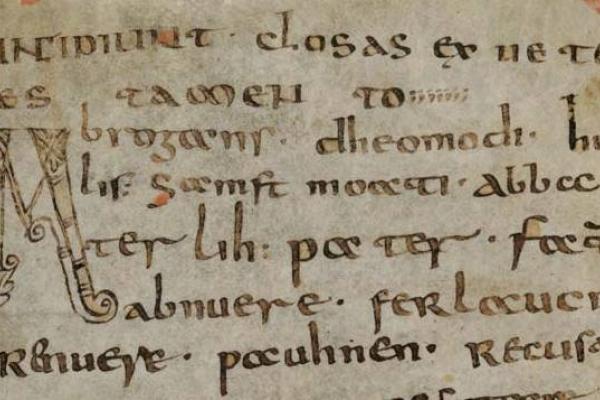 INCIPIUNT · CLOSAS EX UE TE
ES TAMEN TO
Abrogans · dheomodi · hu
lis · samft moati · abba
ter lih : pater · fat
abnuere · ferlaucn
Renuere · pauhnen · Recusa